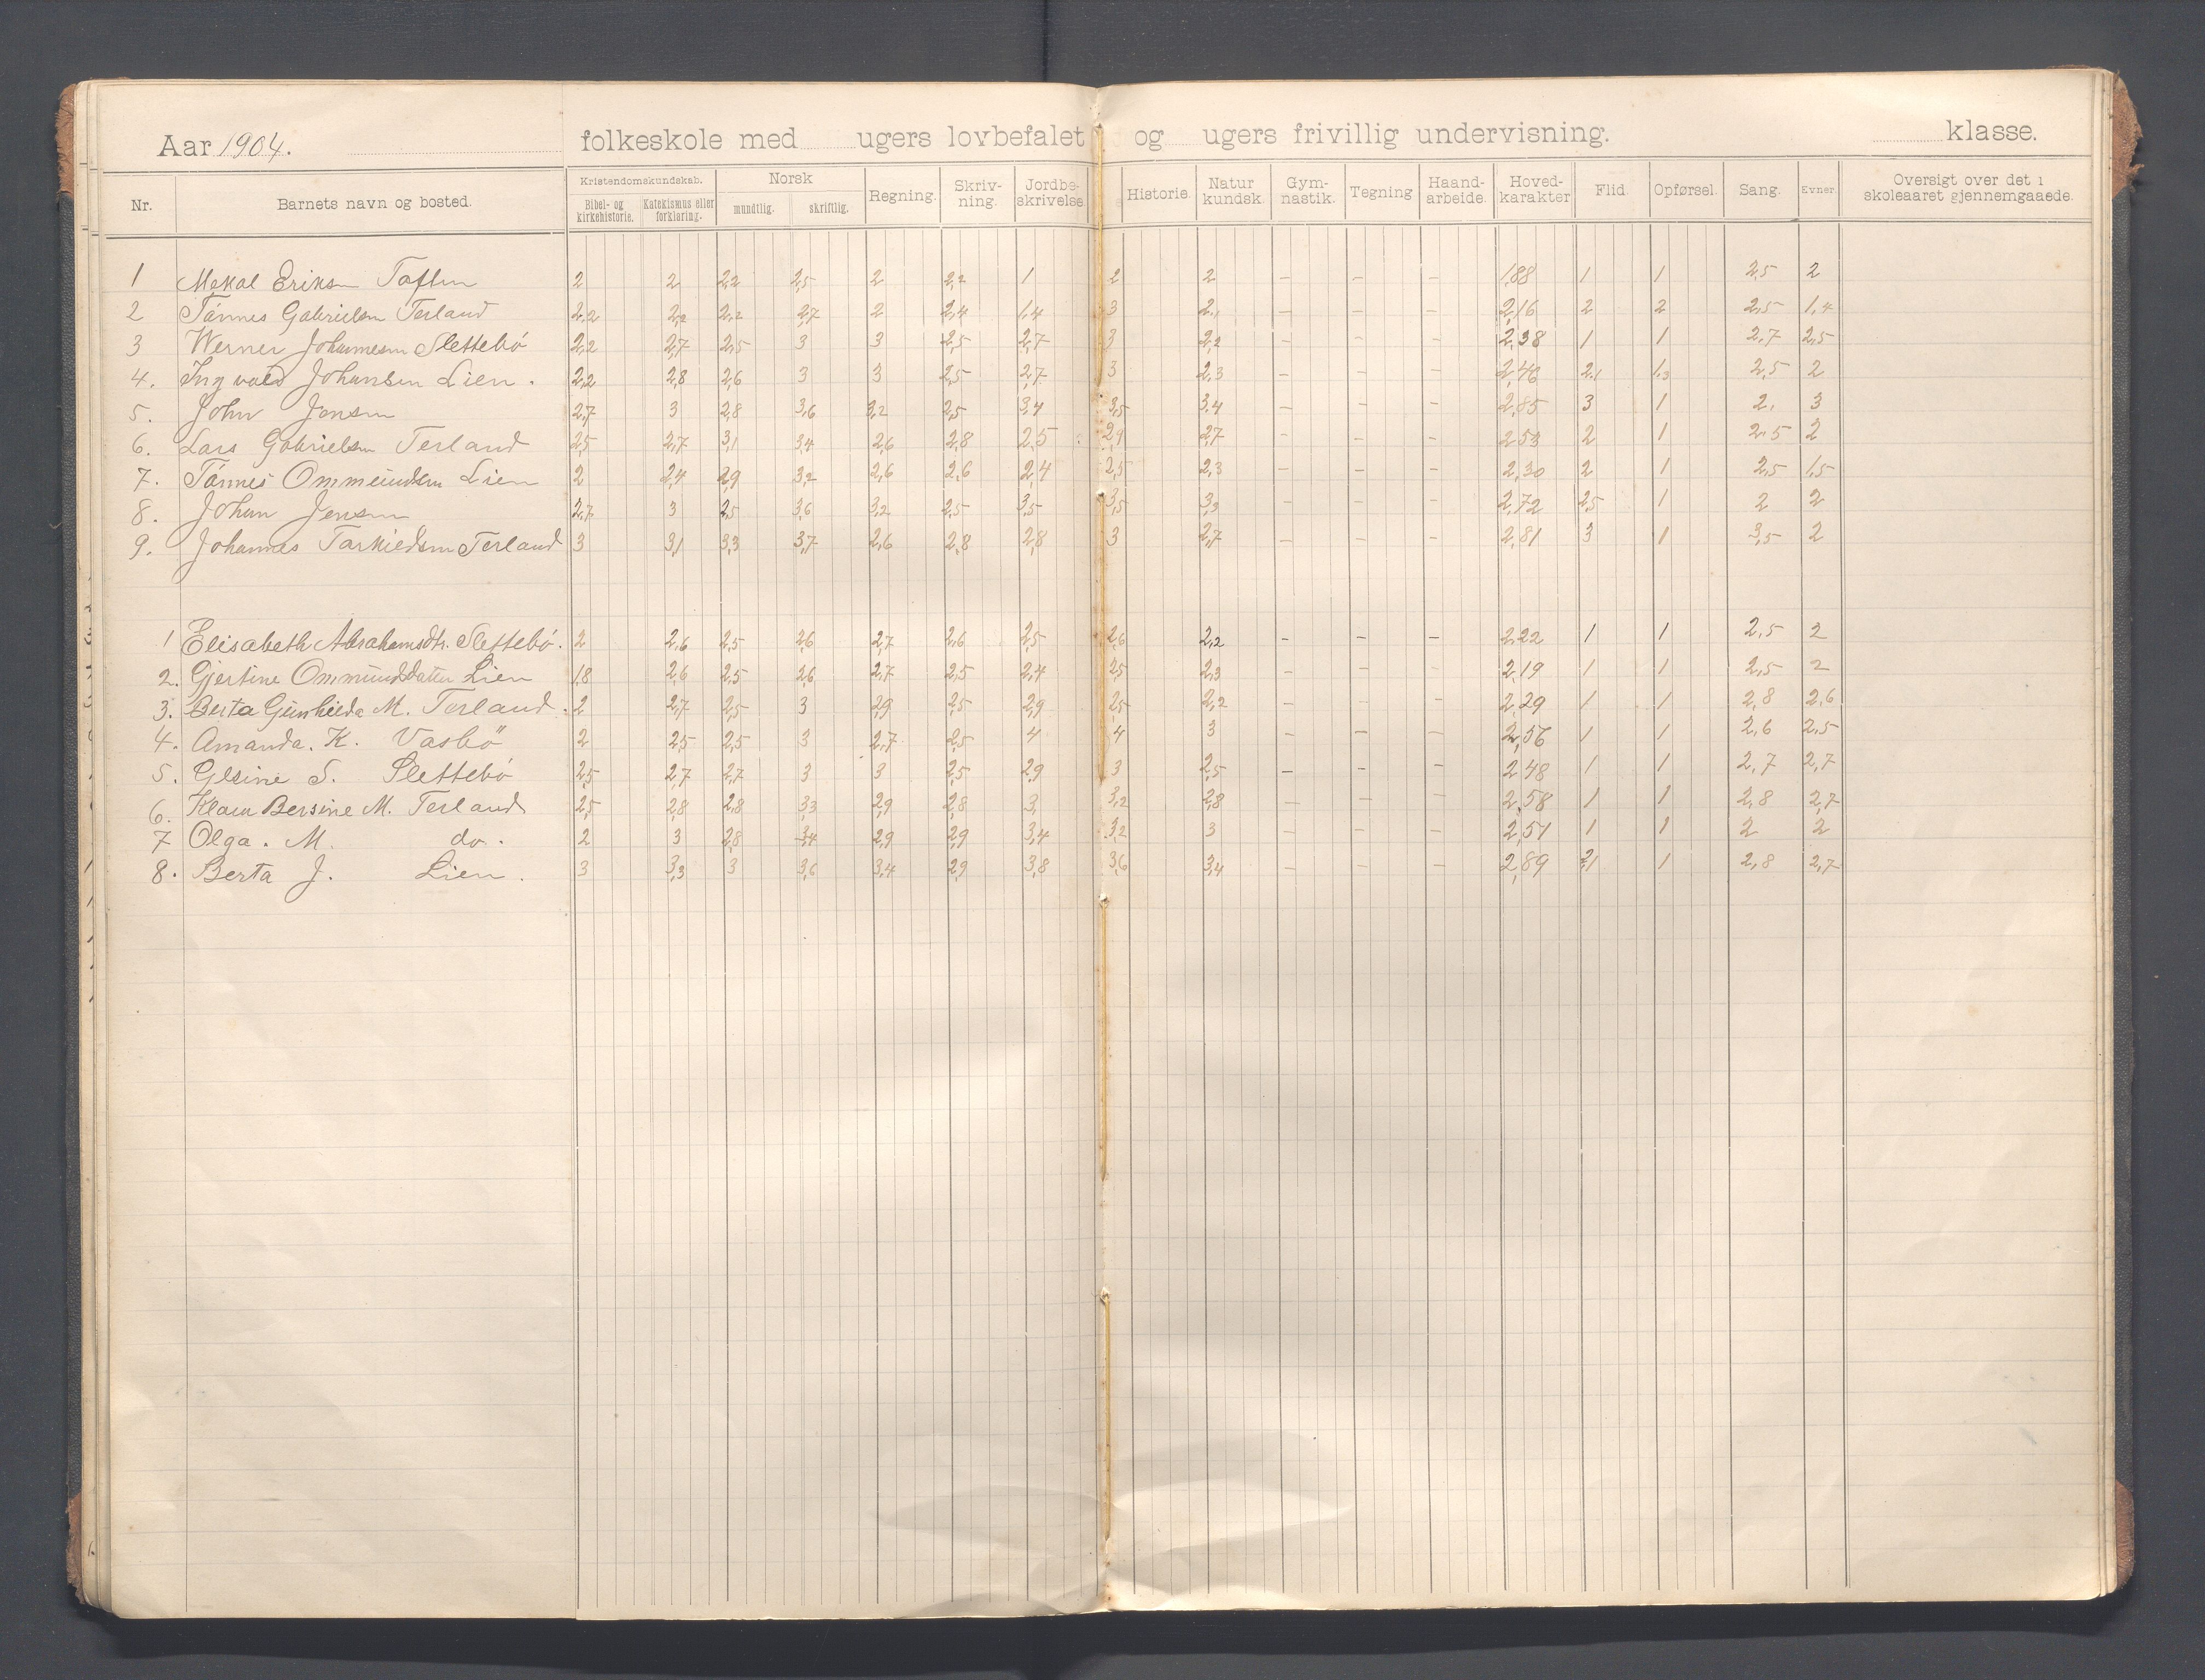 Aar 1904. folkeskole med ugers lovbefalet og ugers frivillig undervisning. klasse.
Nr. Barnets navn og bosted. Kristendomskundskab. Bibel- og kirkehistorie. Katekismus eller forklaring. Norsk mundtlig. skriftlig. Regning. Skriv-ning. Jordbe-skrivelse. Historie. Natur kundsk. Gym-nastik. Tegning Haand-arbeide. Hoved-karakter Flid. Opførsel. Sang. Evner. Oversigt over det i skoleaaret gjennemgaaede.
1 Mekal Eriksen 2 2 2,2 2,5 2 2,2 1 2 2 – – – 1,88 1 1 2,5 2
2 Tönnes Gabrielsen Terland 2,2 2,2 2,2 2,7 2 2,4 1,4 3 2,1 – – – 2,16 2 2 2,5 1,4
3 Werner Johannesen Slettebö 2,2 2,7 2,5 3 3 2,5 2,7 3 2,2 – – – 2,38 1 1 2,7 2,5
4. Ingvald Johansen Lien. 2,2 2,8 2,6 3 3 2,5 2,7 3 2,3 – – – 2,46 2,1 1,3 2,5 2
5. John Jensen 2,7 3 2,8 3,6 3,2 2,5 3,4 3,5 3,4 – – – 2,85 3 1 2, 3
6. Lars Gabrielsen Terland 2,5 2,7 3,1 3,4 2,6 2,8 2,5 2,9 2,7 – – – 2,53 2 1 2,5 2
7. Tönnes Ommundsen Lien 2 2,4 2,9 3,2 2,6 2,6 2,4 2,5 2,3 – – – 2,30 2 1 2,5 1,5
8. Johan Jensen 2,7 3 2,5 3,6 3,2 2,5 3,5 3,5 3,3 – – – 2,72 2,5 1 2 2
9. Johannes Tarkieldsen Terland 3 3,1 3,3 3,7 2,6 2,8 2,8 3 2,7 – – – 2,81 3 1 3,5 2
1 Elisabeth Abrahamsdtr. Slettebö. 2 2,6 2,5 2,6 2,7 2,6 2,5 2,6 2,2 – – – 2,22 1 1 2,5 2
2. Gjertine Ommundsdatter Lien 1,8 2,6 2,5 2,6 2,7 2,5 2,4 2,5 2,3 – – – 2,19 1 1 2,5 2
3. Berta Gunhilda M. Terland. 2 2,7 2,5 3 2,9 2,5 2,9 2,5 2,2 – – – 2,29 1 1 2,8 2,6
4. Amanda. K. Vasbö 2 2,5 2,5 3 2,7 2,5 4 4 3 – – – 2,56 1 1 2,6 2,5
5. Glsine S. Slettebö 2,5 2,7 2,7 3 3 2,5 2,9 3 2,5 – – – 2,48 1 1 2,7 2,7
6. Klara Bersine M. Terland 2,5 2,8 2,8 3,3 2,9 2,8 3, 3,2 2,8 – – – 2,58 1 1 2,8 2,7
7 Olga. M. do. 2 3 2,8 3,4 2,9 2,9 3,4 3,2 3 – – – 2,51 1 1 2 2
8. Berta J. Lien. 3 3,3 3 3,6 3,4 2,9 3,8 3,6 3,4 – – – 2,89 2,1 1 2,8 2,7